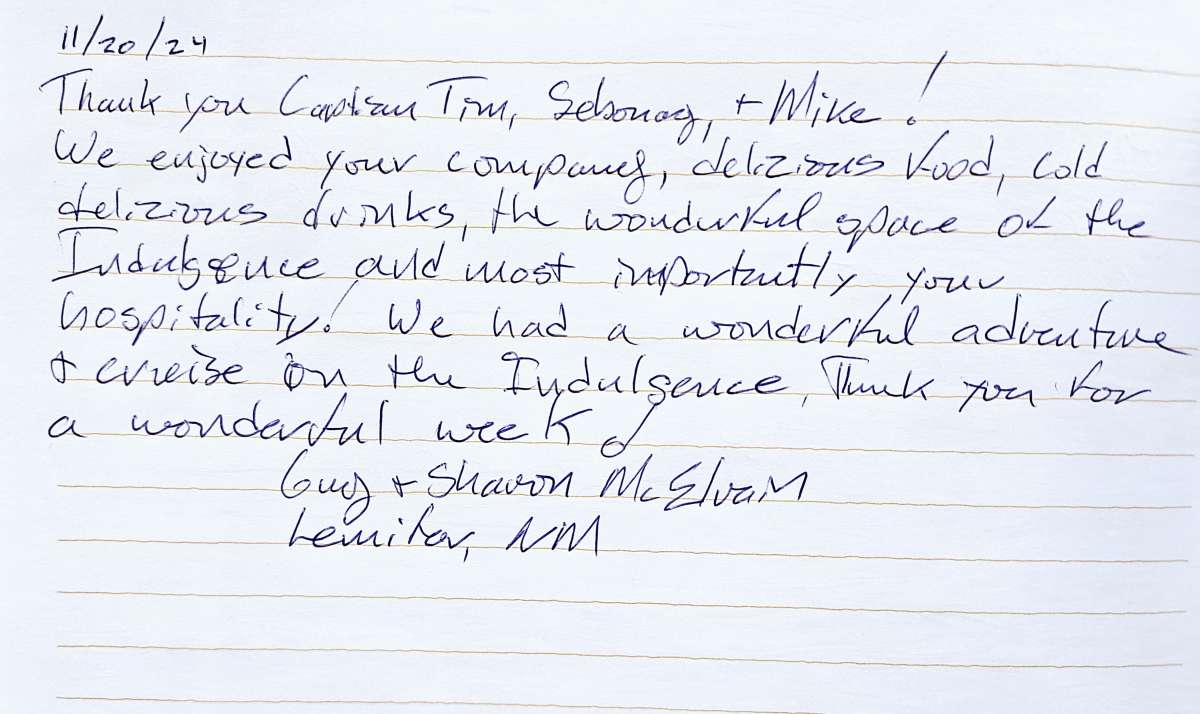 11/20/24
Thank you Captian Tim, + Mike!
We enjoyed your company, delizious food, cold
delizious drinks, the wonderful space of the
Indulgence and most importantly your
hospitality! We had a wonderful adventure
+ cruise on the Indulgence, Thank you for
a wonderful week!
Guy + Sharon McElvain
Lemitar, NM